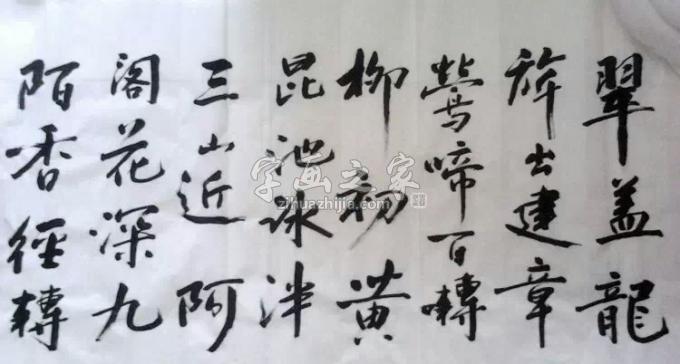 翠盖龍
旂出建章
鶯啼百囀
柳初黄
昆池冰泮
三山近 阿
阁花深九
陌香徑轉
字画之家
zihuazhijia.com